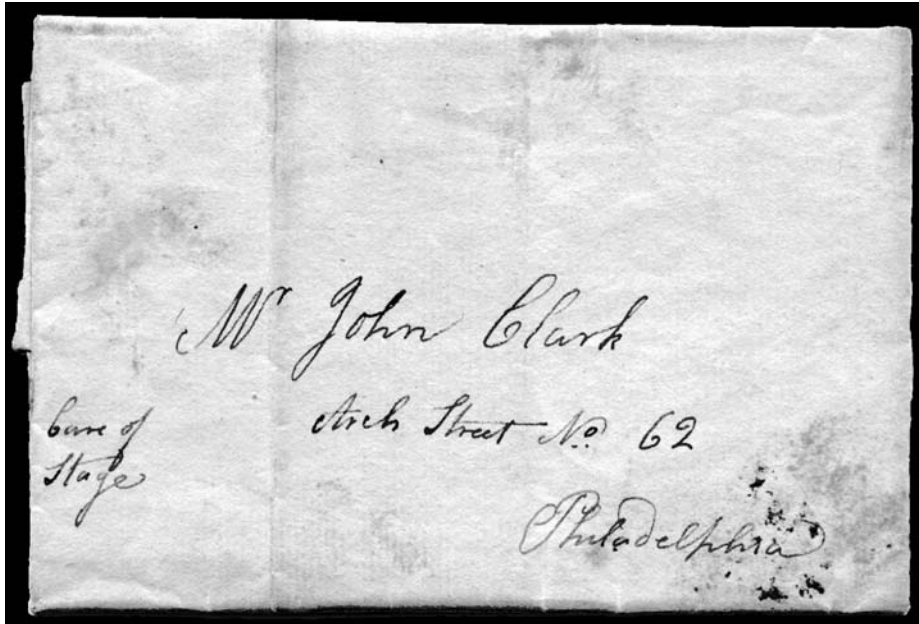 Mr John Clark
Care of
Stage
Arch Street No. 62
Philadelphia